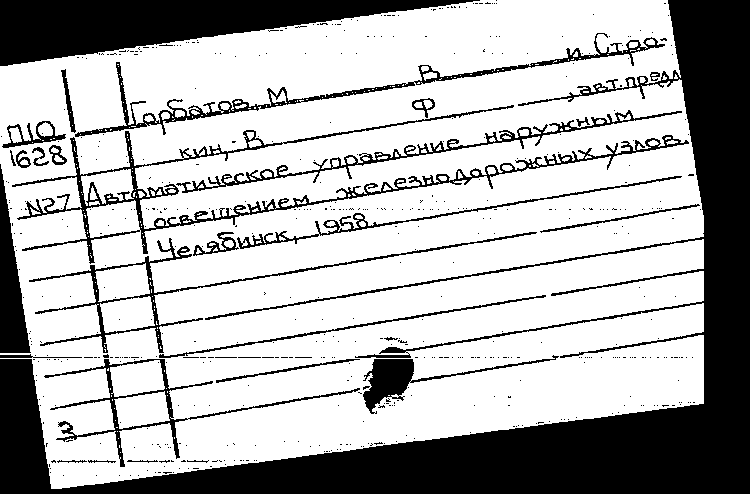 Горбатов, М В и Стро-
П10
1628
кин, В Ф , авт. предл
N27 Автоматическое управление наружным
освещением железнодорожных узлов.
Челябинск, 1958.
3